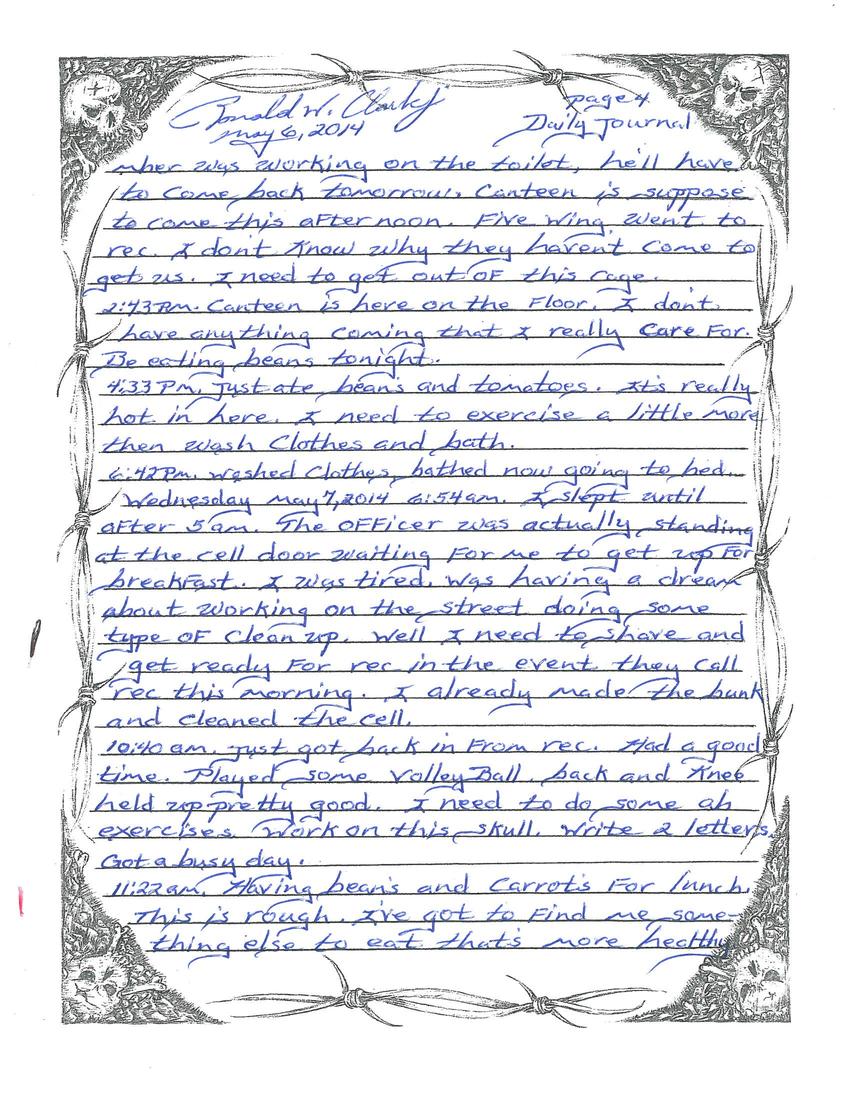 Ronald W. Clark Jr page 4
May 6, 2014 Daily Journal
mber was working on the toilet, he'll have
to come back tomorrow. Canteen is suppose
to come this afternoon. Five wing went to
rec. I don't know why they haven't come to
get us. I need to get out of this cage.
2:43 PM. Canteen is here on the floor. I don't
have anything coming that I really care for.
Be eating beans tonight.
4:33 PM. Just ate beans and tomatoes. It's really
hot in here. I need to exercise a little more
then wash clothes and bath.
6:42 PM. Washed clothes, bathed now going to bed...
Wednesday May 7, 2014 6:54 am. I slept until
after 5 am. The officer was actually standing
at the cell door waiting for me to get up for
breakfast. I was tired. Was having a dream
about working on the street doing some
type of clean up. Well I need to shave and
get ready for rec in the event they call
rec this morning. I already made the bunk
and cleaned the cell.
10:40 am. Just got back in from rec. Had a good
time. Played some Volley Ball. back and knee
held up pretty good. I need to do some ab
exercises. Work on this skull. Write 2 letters.
Got a busy day.
11:22 am. Having beans and carrot's for lunch.
This is rough. I've got to find me some-
thing else to eat that's more healthy